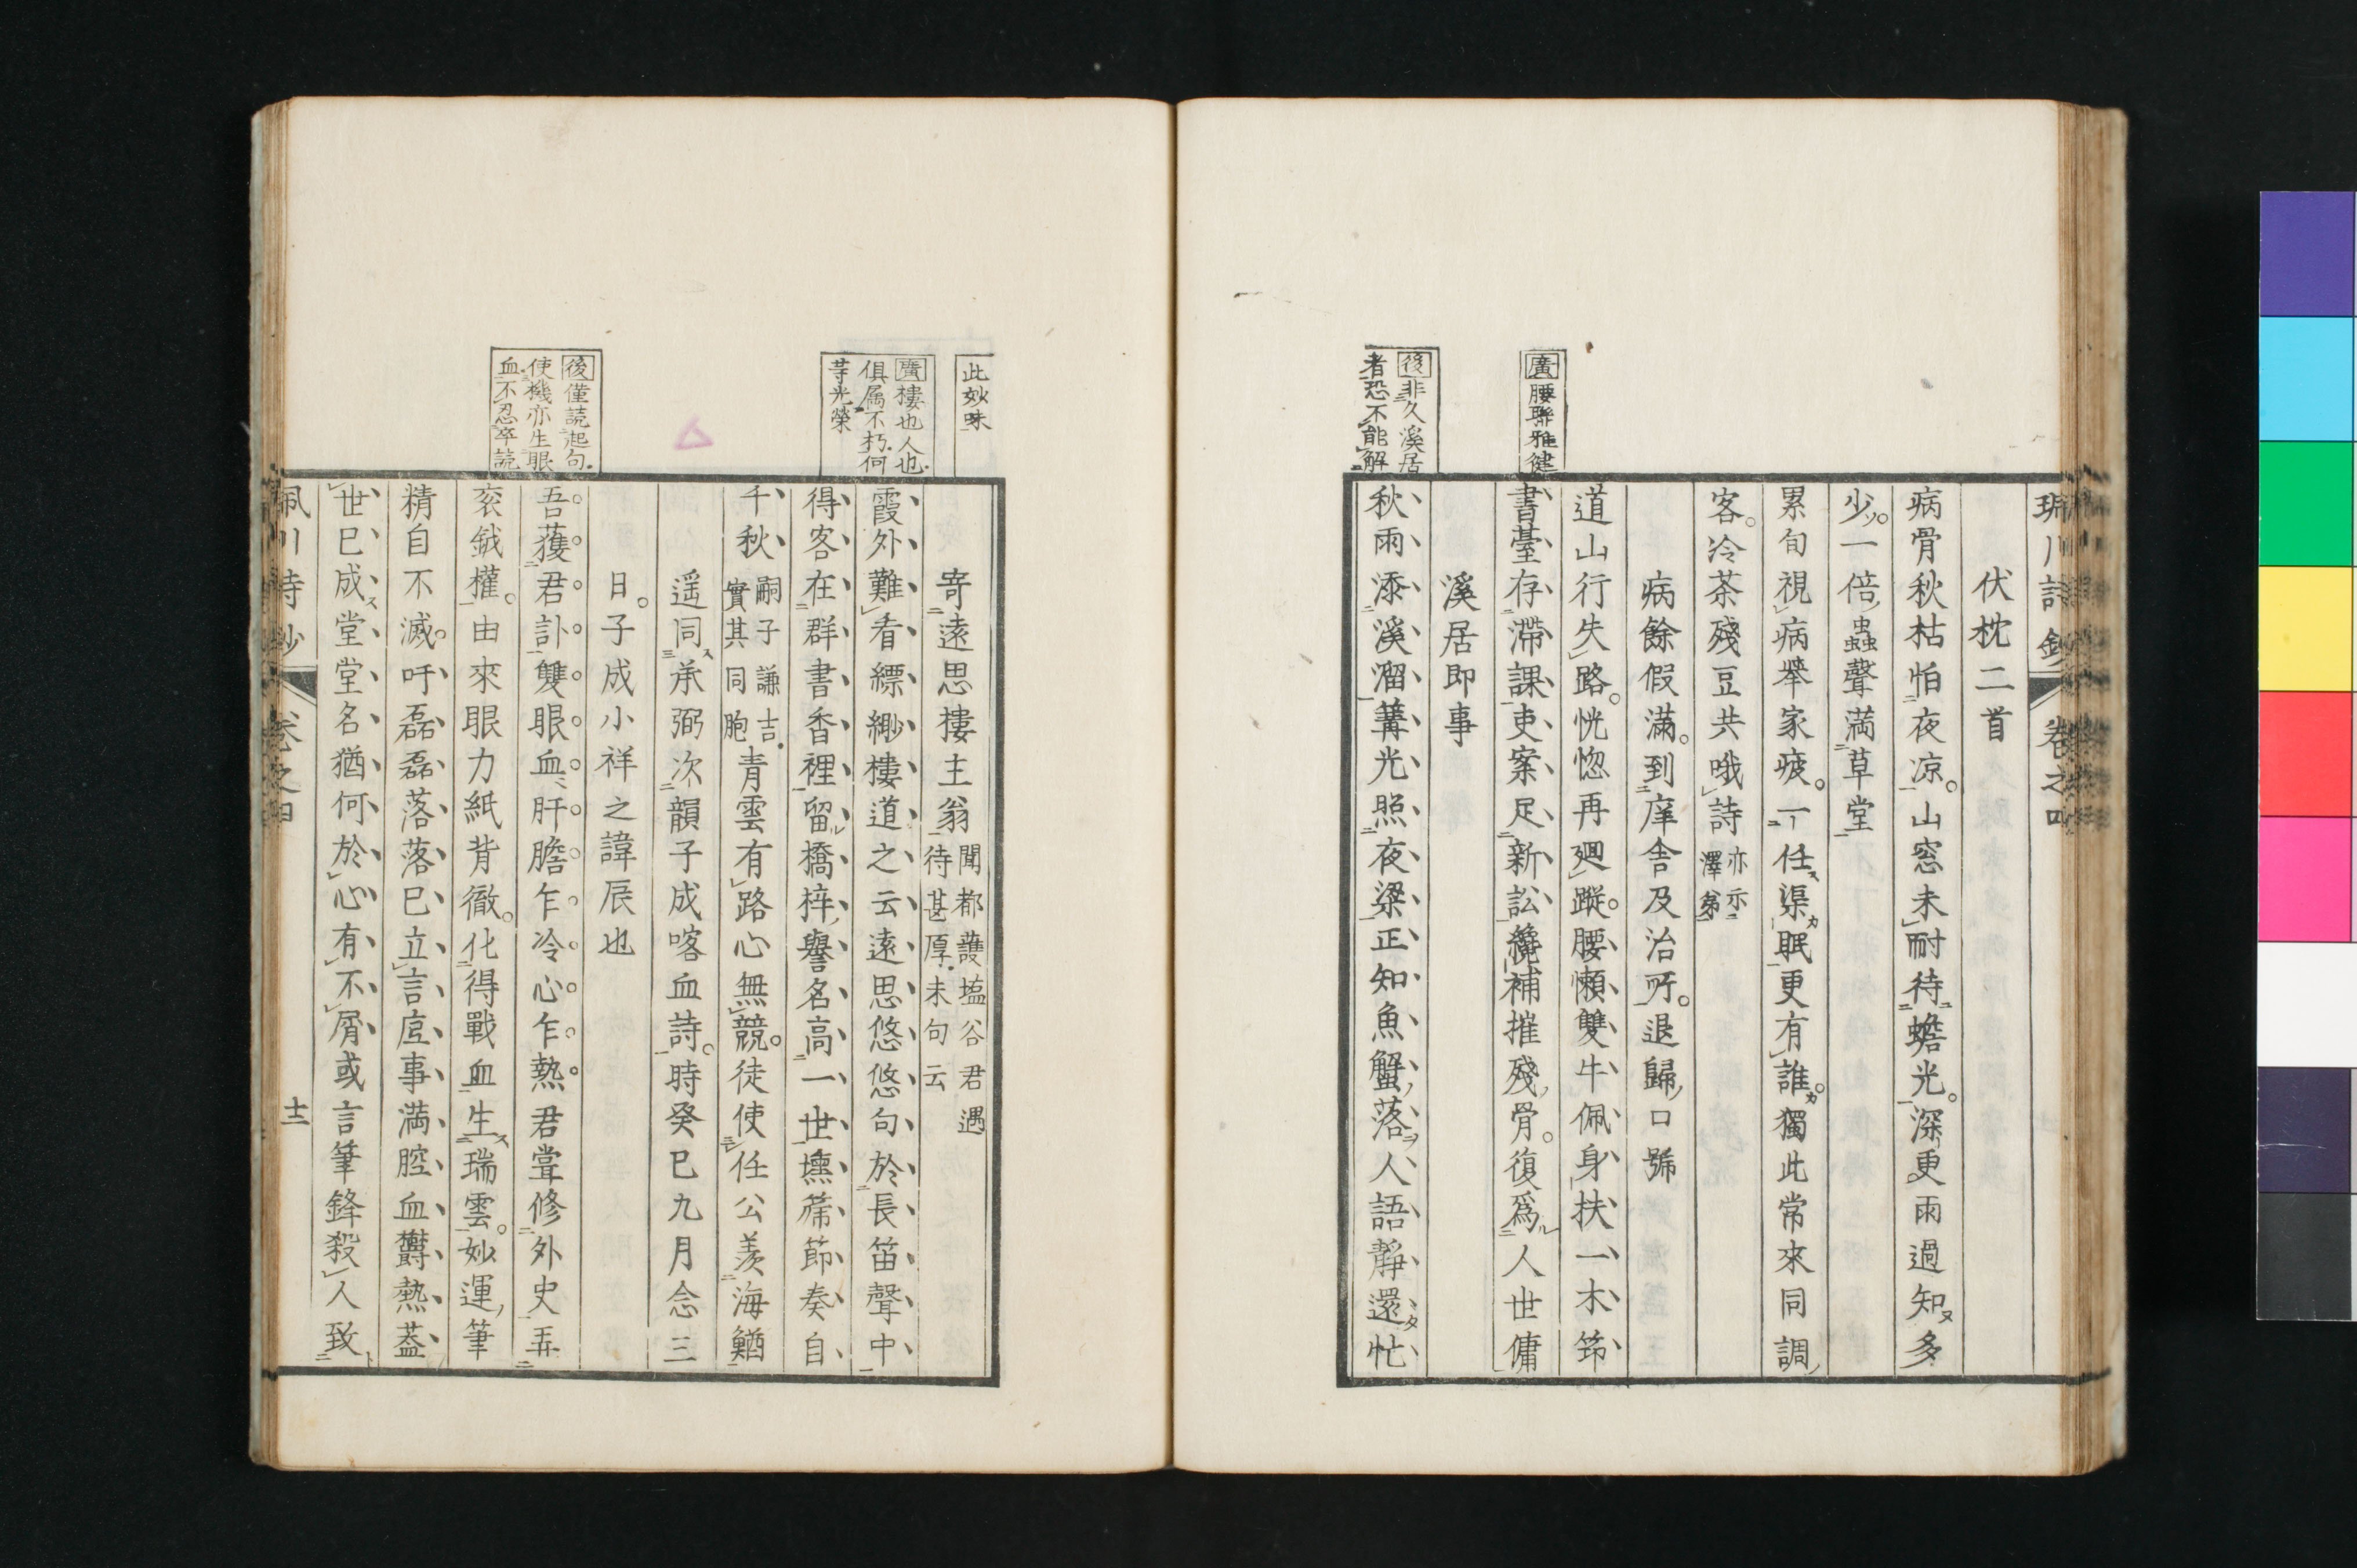 廣腰聯雅健
後非久溪居
者恐不能解
詩鈔 卷之四
伏枕二首
病骨秋枯怕夜凉山窓未耐待蟾光深更雨過知多
少一倍蟲聲満草堂
累旬視病挙家疲一任渠眠更有誰獨此常來同調
客冷茶殘豆共哦詩 亦示
澤弟
病餘假滿到庠舎及治所退歸口號
道山行失路恍惚再廻蹤腰懶雙牛佩身扶一木筇
書臺存滞課吏案足新訟纔補摧殘骨復爲人世傭
溪居即事
秋雨添溪溜篝光照夜梁正知魚蟹落人語靜還忙
此妙味
廣樓也人也
俱属不朽何
等光榮
後僅読起句
使機亦生眼
血不忍卒読
寄遠思樓主翁 聞都護塩谷君遇
待甚厚未句云
霞外難看縹緲樓道之云遠思悠悠句於長笛聲中
得客在群書香裡留橋梓譽名高一世壎箎節奏自
千秋 嗣子謙吉
實其同胞 青雲有路心無競徒使任公羨海鰌
遥同承弼次韻子成喀血詩時癸巳九月念三
日子成小祥之諱辰也
吾獲君訃雙眼血肝膽乍冷心乍熱君甞修外史弄
衮鉞權由來眼力紙背徹化得戰血生瑞雲妙運筆
精自不滅吁磊磊落落已立言底事満腔血欝熱蓋
世已成堂堂名猶何於心有不屑或言筆鋒殺人致
川詩鈔 卷之四 十二